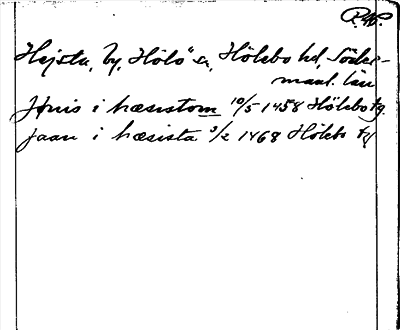 Hejsta, by, Hölö sn, Hölebo hd, Söder-
manl. län
Jönis i hæsistom 10/5 1458 Hölebo tg.
Jaan i hæsista 3/2 1468 Hölebo tg